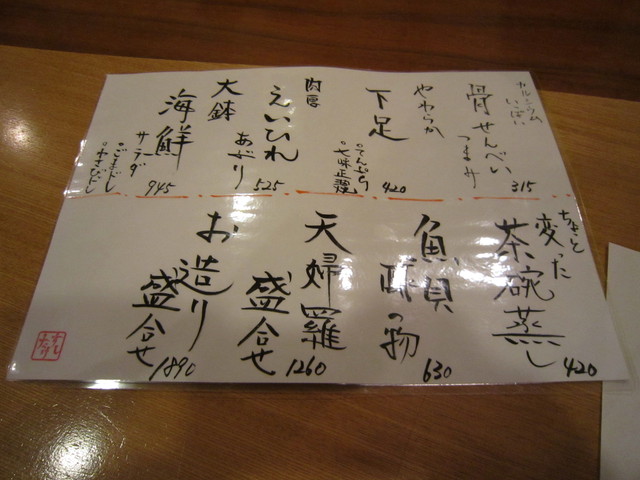 カルシウム
いっぱい
骨せんべい
つまみ
315
やわらか
下足
。てんぷら
。七味正油
420
肉厚
えいひれ
あぶり
525
大鉢
海鮮
サラダ
。ごまだし
。わさびだし
945
ちょっと
変った
茶碗蒸し
420
魚貝
酢の物
630
天婦羅
盛合せ
1260
お造り
盛合せ
1890